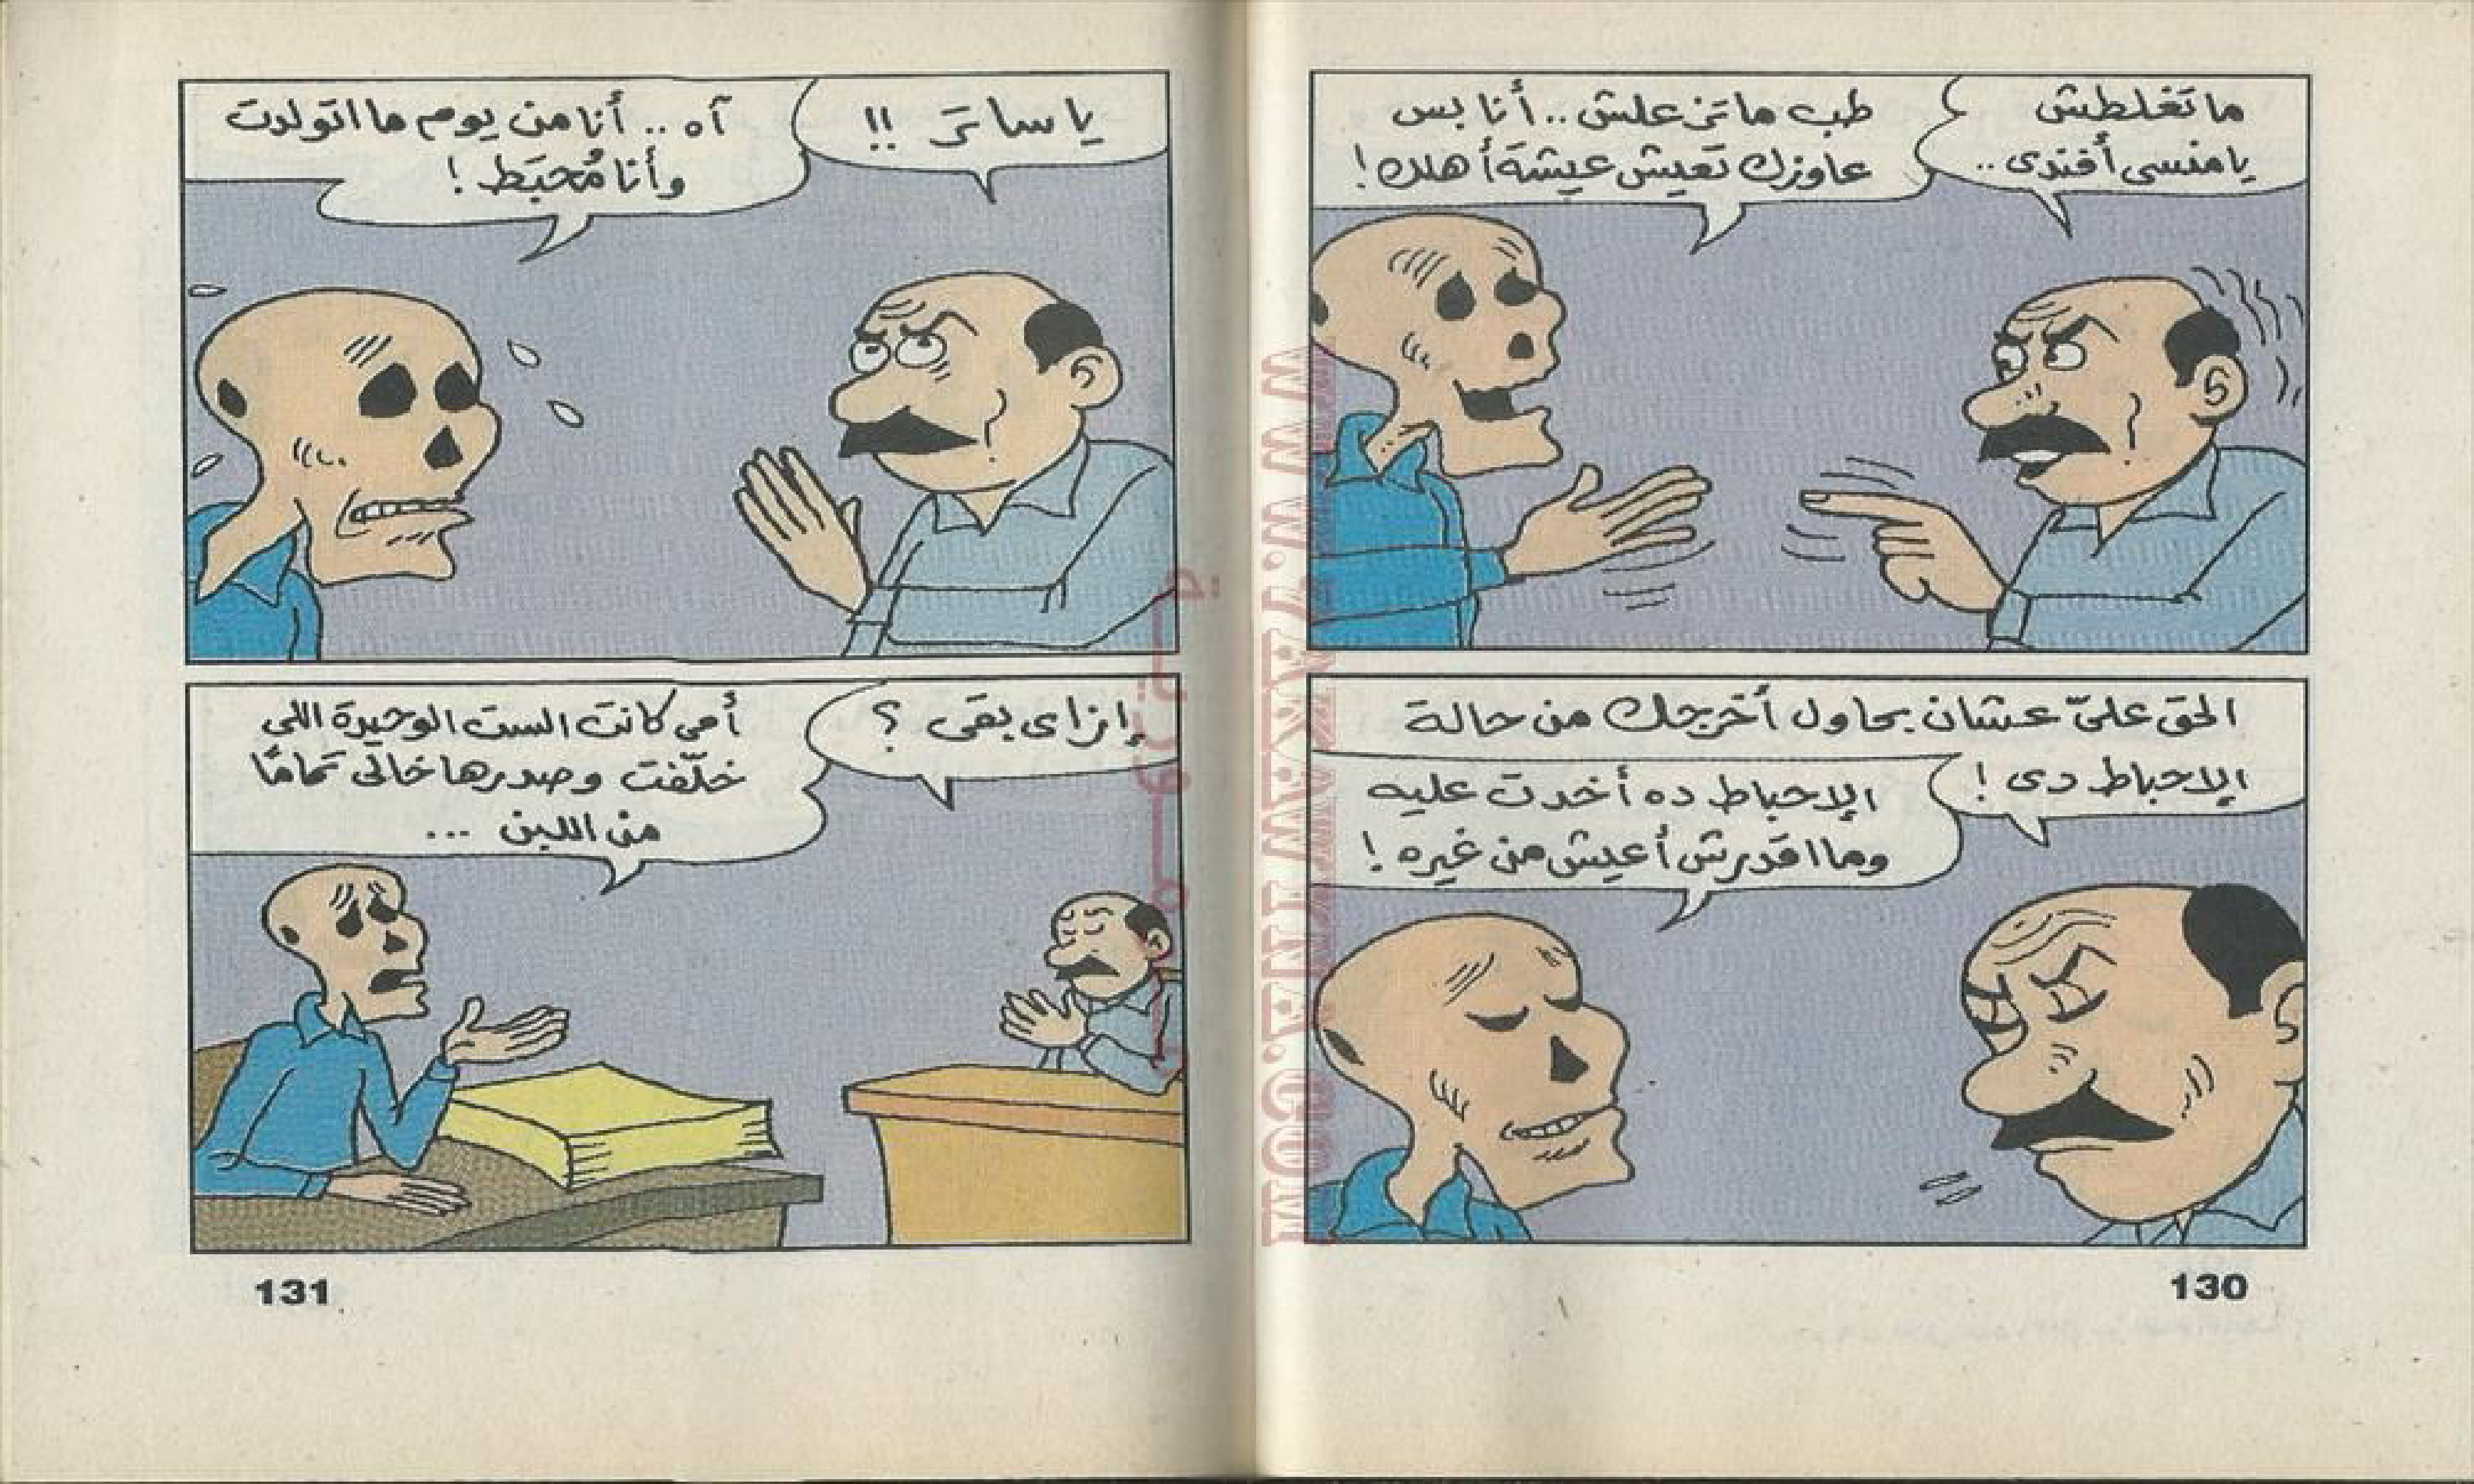 ما تغلطش
يا منسى أفندى ..
طب ما تزعلش .. أنا بس
عاوزك تعيش عيشة أهلك !
الحق علىّ عشان بحاول أخرجك من حالة
الإحباط دى !
الإحباط ده أخدت عليه
وما اقدرش أعيش من غيره !
130
يا ساتر !!
آه .. أنا من يوم ما اتولدت
وأنا مُحبَط !
إزاى بقى ؟
أمى كانت الست الوحيدة اللى
خلّفت وصدرها خالى تمامًا
من اللبن ...
131